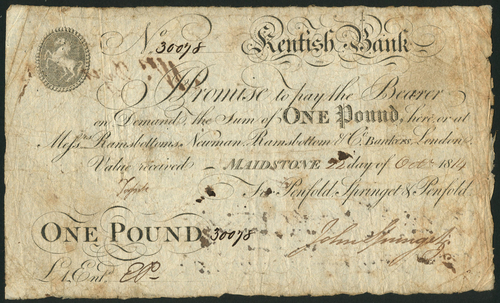 No. 30078 Kentish Bank
I Promise to pay the Bearer
on Demand, the Sum of ONE Pound, here, or at
Messrs. Ramsbottoms, Newman, Ramsbottom & Co. Bankers, London,
Value received MAIDSTONE 22 day of Octr. 1814
For Penfold, Springet & Penfold
ONE POUND 30078
John Springett
Entd.